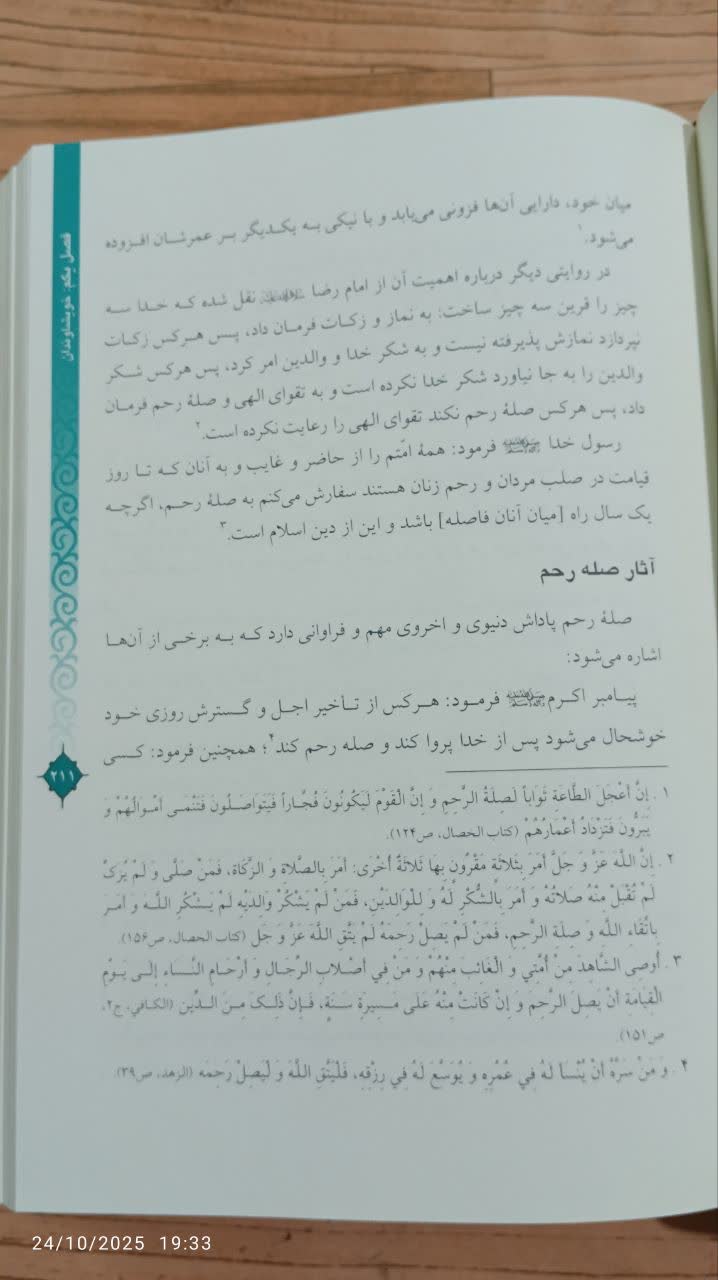 میان خود، دارایی آن‌ها فزونی می‌یابد و با نیکی به یکدیگر بر عمرشان افزوده
می‌شود.۱
در روایتی دیگر درباره اهمیت آن از امام رضا علیه‌السلام نقل شده که خدا سه
چیز را قرین سه چیز ساخت: به نماز و زکات فرمان داد، پس هرکس زکات
نپردازد نمازش پذیرفته نیست و به شکر خدا و والدین امر کرد، پس هرکس شکر
والدین را به جا نیاورد شکر خدا نکرده است و به تقوای الهی و صلۀ رحم فرمان
داد، پس هرکس صلۀ رحم نکند تقوای الهی را رعایت نکرده است.۲
رسول خدا فرمود: همۀ امّتم را از حاضر و غایب و به آنان که تا روز
قیامت در صلب مردان و رحم زنان هستند سفارش می‌کنم به صلۀ رحم، اگرچه
یک سال راه [میان آنان فاصله] باشد و این از دین اسلام است.۳
آثار صله رحم
صلۀ رحم پاداش دنیوی و اخروی مهم و فراوانی دارد که به برخی از آن‌ها
اشاره می‌شود:
پیامبر اکرم فرمود: هرکس از تأخیر اجل و گسترش روزی خود
خوشحال می‌شود پس از خدا پروا کند و صله رحم کند۴؛ همچنین فرمود: کسی
۱. إنَّ أعْجَلَ الطَّاعَةِ ثَوَاباً لَصِلَةُ الرَّحِمِ وَ إنَّ الْقَوْمَ لَیَکُونُونَ فُجَّاراً فَیَتَوَاصَلُونَ فَتَنْمَی أمْوَالُهُمْ وَ
یَبَرُّونَ فَتَزْدَادُ أعْمَارُهُمْ (کتاب الخصال، ص۱۲۴).
۲. إنَّ اللَّهَ عَزَّ وَ جَلَّ أمَرَ بِثَلَاثَةٍ مَقْرُونٍ بِهَا ثَلَاثَةٌ أُخْرَی: أمَرَ بِالصَّلَاةِ وَ الزَّکَاةِ، فَمَنْ صَلَّی وَ لَمْ یُزَکِّ
لَمْ تُقْبَلْ مِنْهُ صَلَاتُهُ وَ أمَرَ بِالشُّکْرِ لَهُ وَ لِلْوَالِدَیْنِ، فَمَنْ لَمْ یَشْکُرْ وَالِدَیْهِ لَمْ یَشْکُرِ اللَّهَ وَ أمَرَ
بِاتِّقَاءِ اللَّهِ وَ صِلَةِ الرَّحِمِ، فَمَنْ لَمْ یَصِلْ رَحِمَهُ لَمْ یَتَّقِ اللَّهَ عَزَّ وَ جَلَّ (کتاب الخصال، ص۱۵۶).
۳. أُوصِی الشَّاهِدَ مِنْ أُمَّتِی وَ الْغَائِبَ مِنْهُمْ وَ مَنْ فِی أصْلَابِ الرِّجَالِ وَ أرْحَامِ النِّسَاءِ إلَی یَوْمِ
الْقِیَامَةِ أنْ یَصِلَ الرَّحِمَ وَ إنْ کَانَتْ مِنْهُ عَلَی مَسِیرَةِ سَنَةٍ، فَإنَّ ذَلِکَ مِنَ الدِّینِ (الکافی، ج۲،
ص۱۵۱).
۴. وَ مَنْ سَرَّهُ أنْ یُنْسَأَ لَهُ فِی عُمُرِهِ وَ یُوَسَّعَ لَهُ فِی رِزْقِهِ، فَلْیَتَّقِ اللَّهَ وَ لْیَصِلْ رَحِمَه (الزهد، ص۳۹).
فصل یکم: خویشاوندان
۲۱۱
24/10/2025 19:33